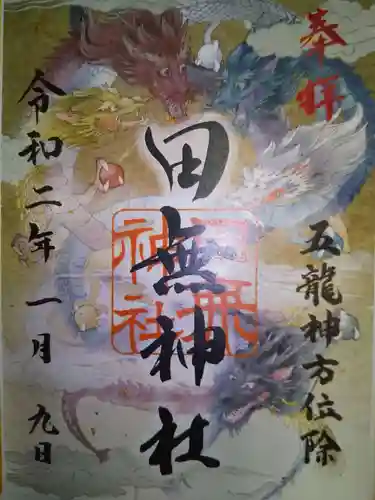 奉拝
五龍神方位除
田無神社
田無神社
令和二年一月九日